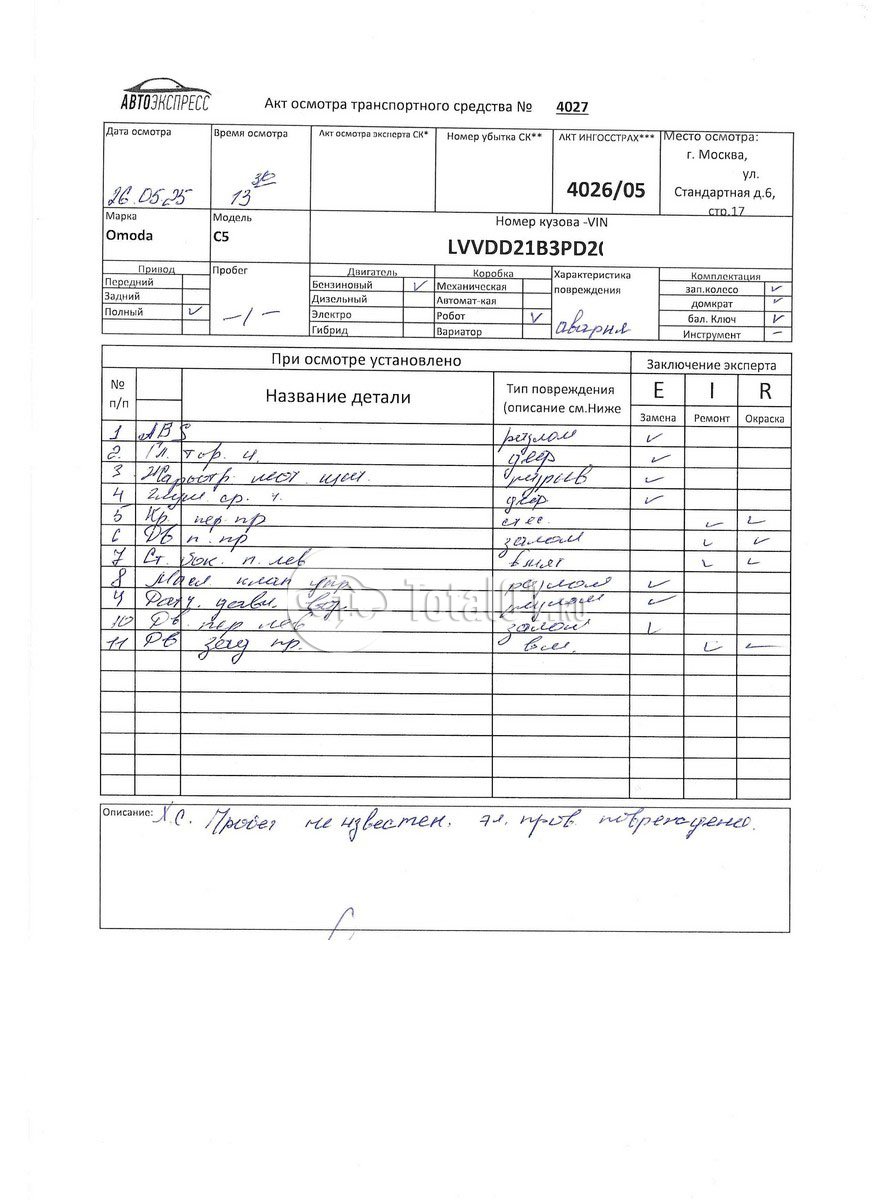 АВТОЭКСПРЕСС
Акт осмотра транспортного средства № 4027
Дата осмотра
Время осмотра
Акт осмотра эксперта СК*
Номер убытка СК**
АКТ ИНГОССТРАХ***
Место осмотра:
г. Москва,
ул.
Стандартная д.6,
стр.17
26.05.25
13 30
4026/05
Марка
Omoda
Модель
C5
Номер кузова -VIN
LVVDD21B3PD2(
Привод
Передний
Задний
Полный ✓
Пробег
-/-
Двигатель
Бензиновый ✓
Дизельный
Электро
Гибрид
Коробка
Механическая
Автомат-кая
Робот ✓
Вариатор
Характеристика
повреждения
авария
Комплектация
зап.колесо ✓
домкрат ✓
бал. Ключ ✓
Инструмент –
При осмотре установлено
Заключение эксперта
№
п/п
Название детали
Тип повреждения
(описание см.Ниже
E I R
Замена Ремонт Окраска
1 ABS разлом ✓
2. Гл. тор. ц. деф ✓
3 разрыв ✓
4 ср. ч. деф ✓
5 Кр. пер. пр ✓ ✓
6 Дв п. пр залом ✓ ✓
7 Ст. бок. п. лев вмят ✓ ✓
8 клап разлом ✓
9 Датч. разлом ✓
10 Дв. пер лев залом ✓
11 Дв зад пр. вм. ✓ ✓
TotalCar.ru
Описание: Х.С. Пробег не известен. эл. пров. повреждена.